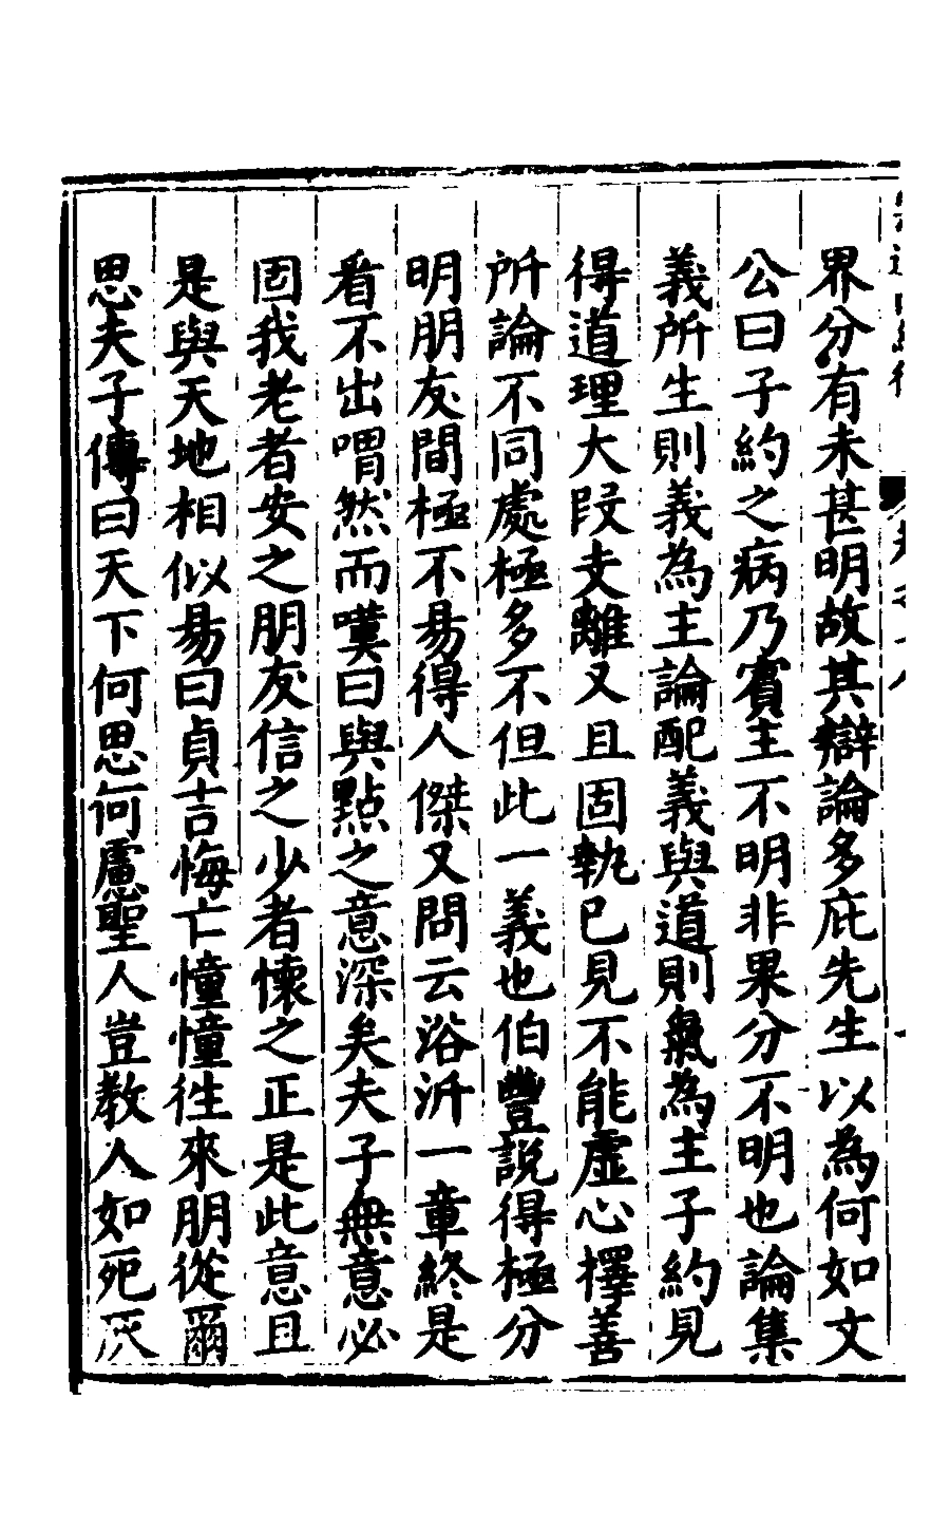 界分有未甚明故其辯論多庇先生以為何如文
公曰子約之病乃賓主不明非果分不明也論集
義所生則義為主論配義與道則氣為主子約見
得道理大段支離又且固執已見不能虛心擇善
所論不同處極多不但此一義也伯豐說得極分
明朋友間極不易得人傑又問云浴沂一章終是
看不出喟然而嘆曰與點之意深矣夫子無意必
固我老者安之朋友信之少者懷之正是此意且
是與天地相似易曰貞吉悔亡憧憧徃來朋從爾
思夫子傳曰天下何思何慮聖人豈教人如死灰